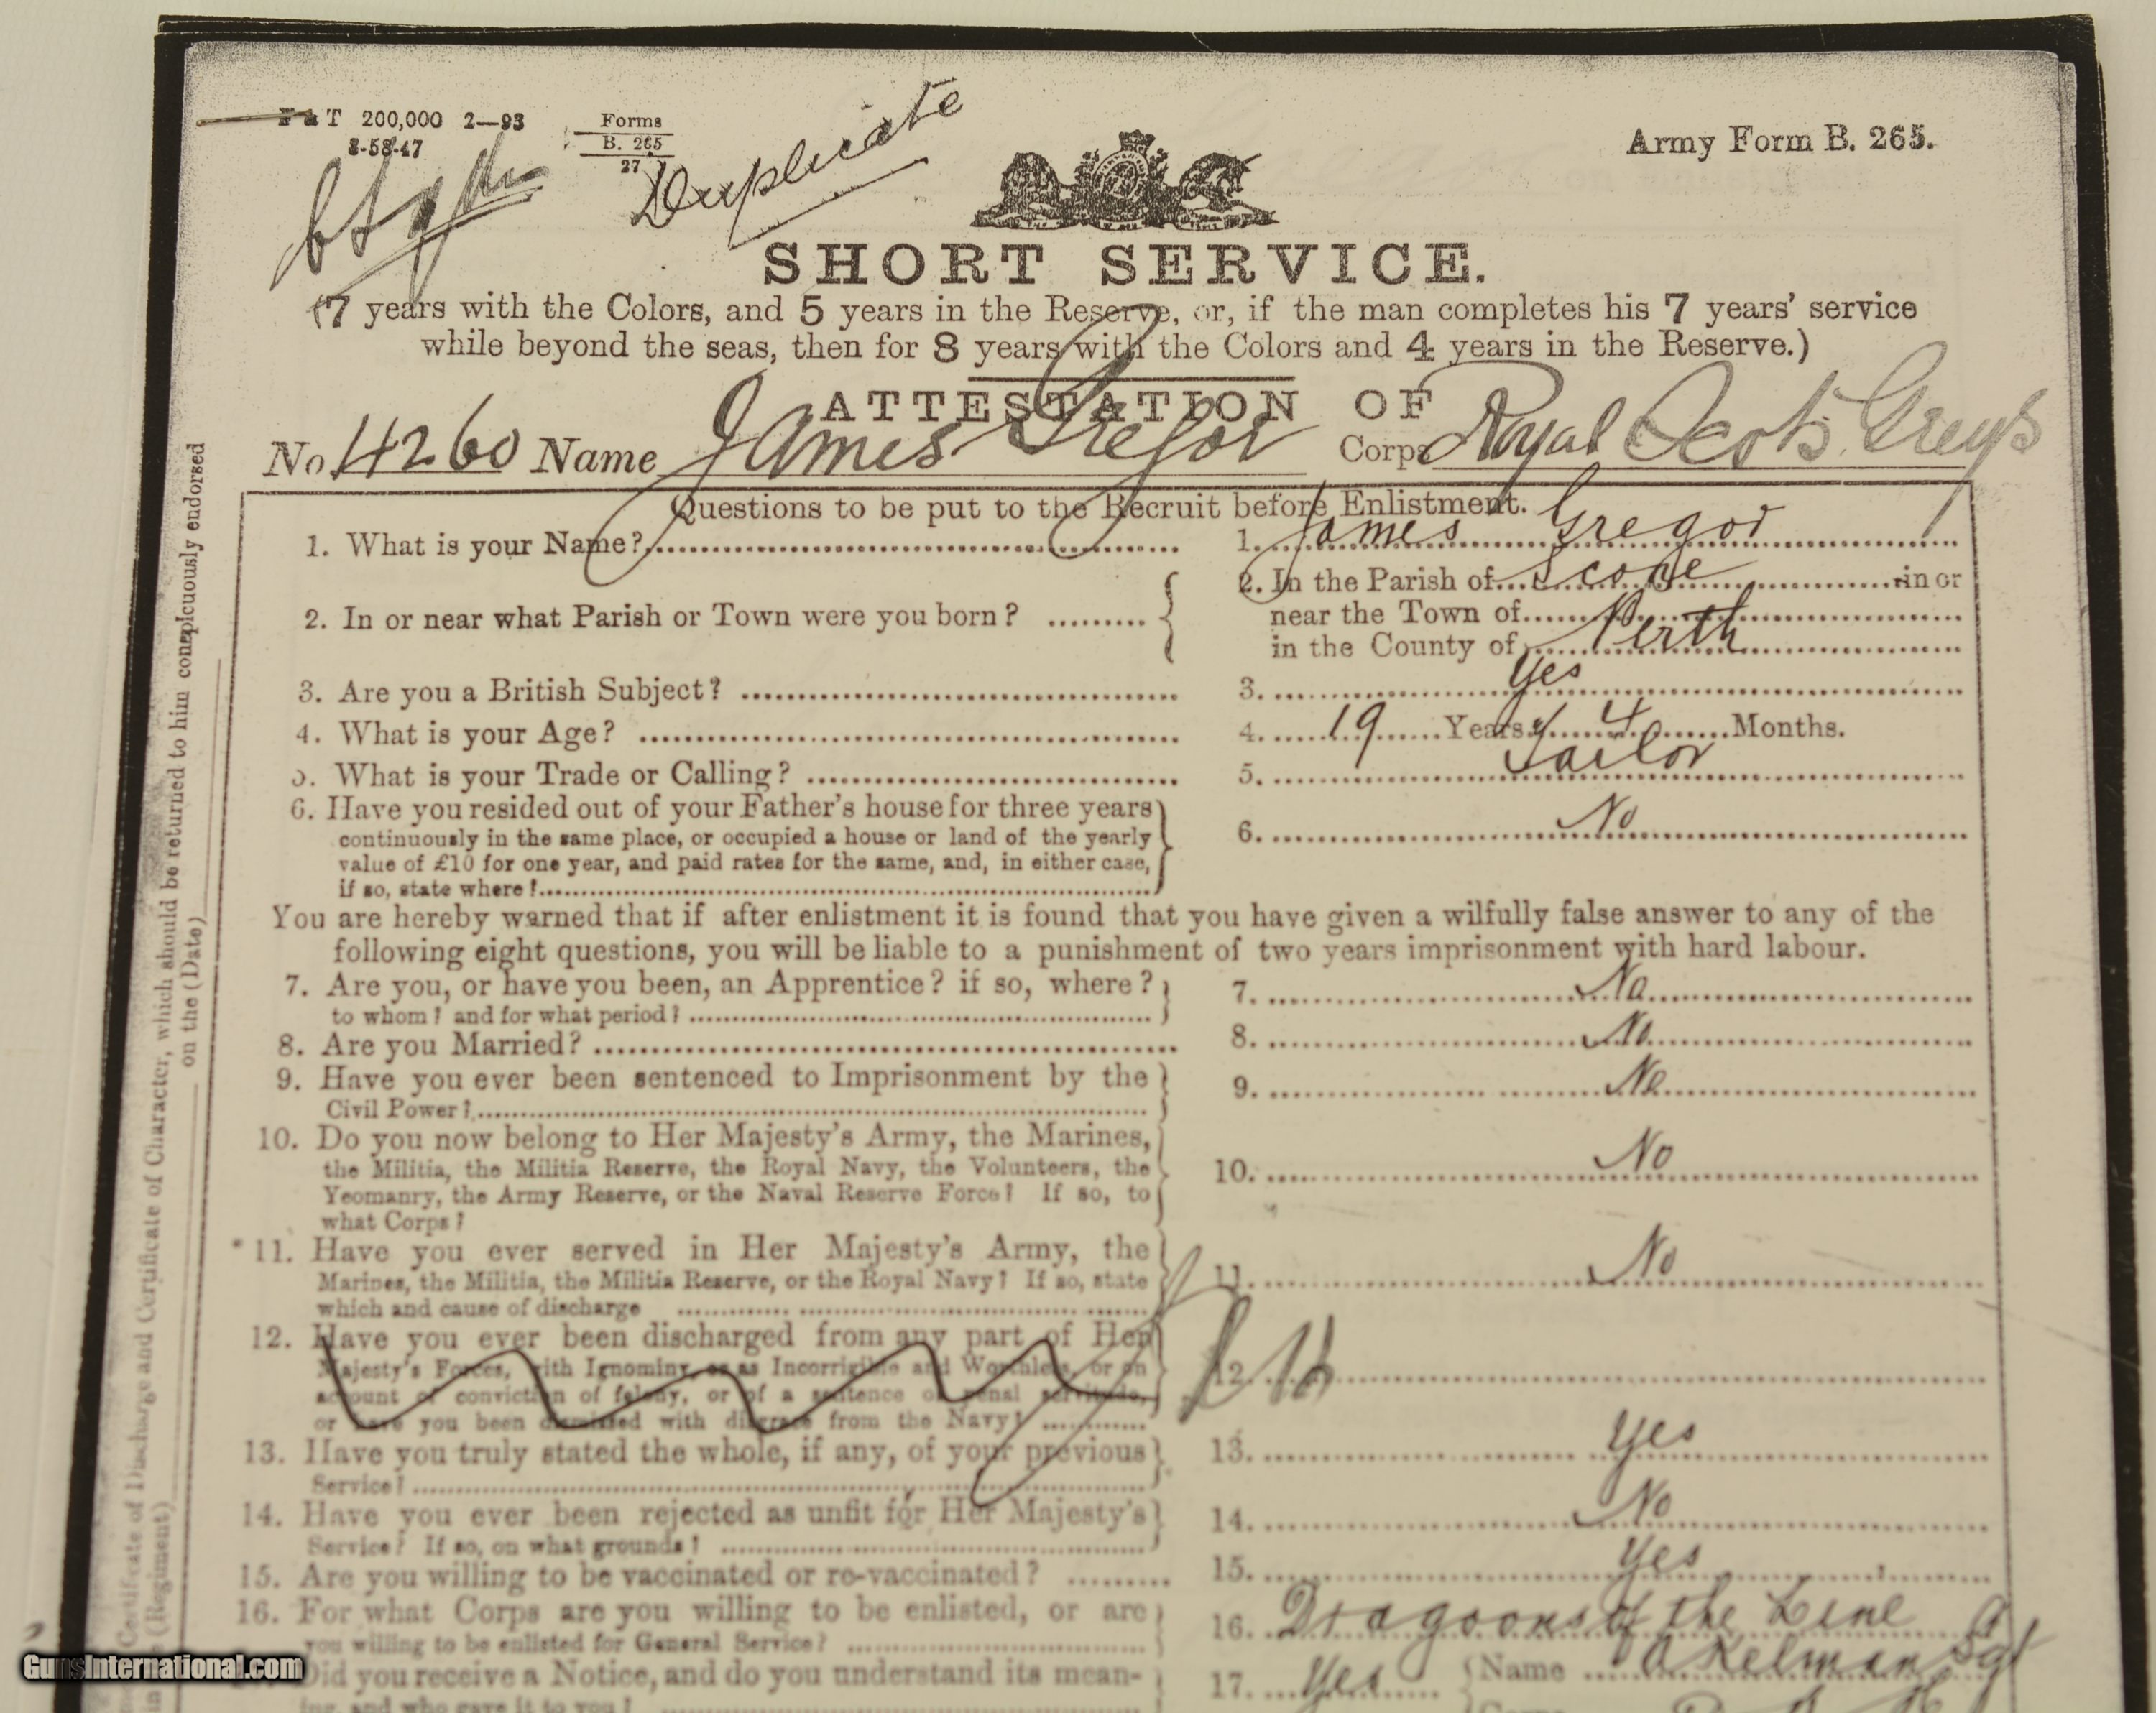 P & T 200,000 2—93
Forms
B. 265
27
Army Form B. 265.
Duplicate
SHORT SERVICE.
(7 years with the Colors, and 5 years in the Reserve, or, if the man completes his 7 years' service
while beyond the seas, then for 8 years with the Colors and 4 years in the Reserve.)
ATTESTATION OF
No. 4260 Name James Gregor Corps Royal Scots Greys
Questions to be put to the Recruit before Enlistment.
1. What is your Name? 1. James Gregor
2. In or near what Parish or Town were you born?
2. In the Parish of Scone in or
near the Town of
in the County of Perth
3. Are you a British Subject? 3. Yes
4. What is your Age? 4. 19 Years 4 Months.
5. What is your Trade or Calling? 5. Tailor
6. Have you resided out of your Father's house for three years
continuously in the same place, or occupied a house or land of the yearly
value of £10 for one year, and paid rates for the same, and, in either case,
if so, state where?
6. No
You are hereby warned that if after enlistment it is found that you have given a wilfully false answer to any of the
following eight questions, you will be liable to a punishment of two years imprisonment with hard labour.
7. Are you, or have you been, an Apprentice? if so, where?
to whom? and for what period?
7. No
8. Are you Married? 8. No
9. Have you ever been sentenced to Imprisonment by the
Civil Power?
9. No
10. Do you now belong to Her Majesty's Army, the Marines,
the Militia, the Militia Reserve, the Royal Navy, the Volunteers, the
Yeomanry, the Army Reserve, or the Naval Reserve Force? If so, to
what Corps?
10. No
* 11. Have you ever served in Her Majesty's Army, the
Marines, the Militia, the Militia Reserve, or the Royal Navy? If so, state
which and cause of discharge
11. No
12. Have you ever been discharged from any part of Her
Majesty's Forces, with Ignominy, or as Incorrigible and Worthless, or on
account of conviction of felony, or of a sentence of penal servitude,
or have you been dismissed with disgrace from the Navy?
12.
13. Have you truly stated the whole, if any, of your previous
Service?
13. Yes
14. Have you ever been rejected as unfit for Her Majesty's
Service? If so, on what grounds?
14. No
15. Are you willing to be vaccinated or re-vaccinated? 15. Yes
16. For what Corps are you willing to be enlisted, or are
you willing to be enlisted for General Service?
16. Dragoons of the Line
Did you receive a Notice, and do you understand its mean-
ing, and who gave it to you?
17. Yes Name
Certificate of Discharge and Certificate of Character, which should be returned to him conspicuously endorsed
(Regiment) on the (Date)
GunsInternational.com